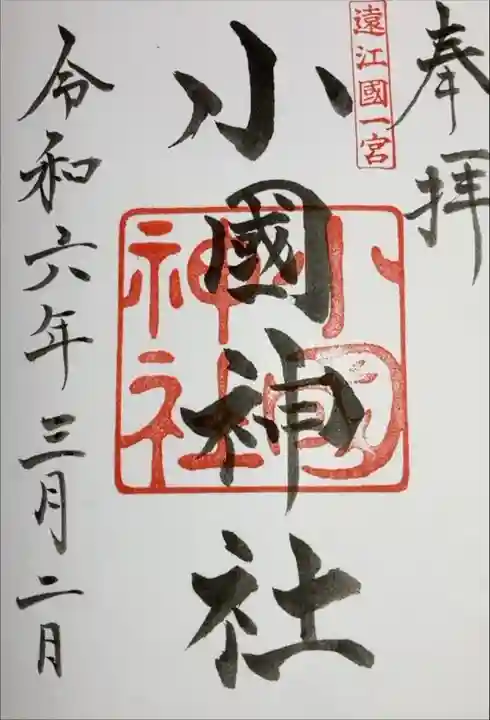 奉拝
遠江國一宮
小國神社
小國神社
令和六年三月二月